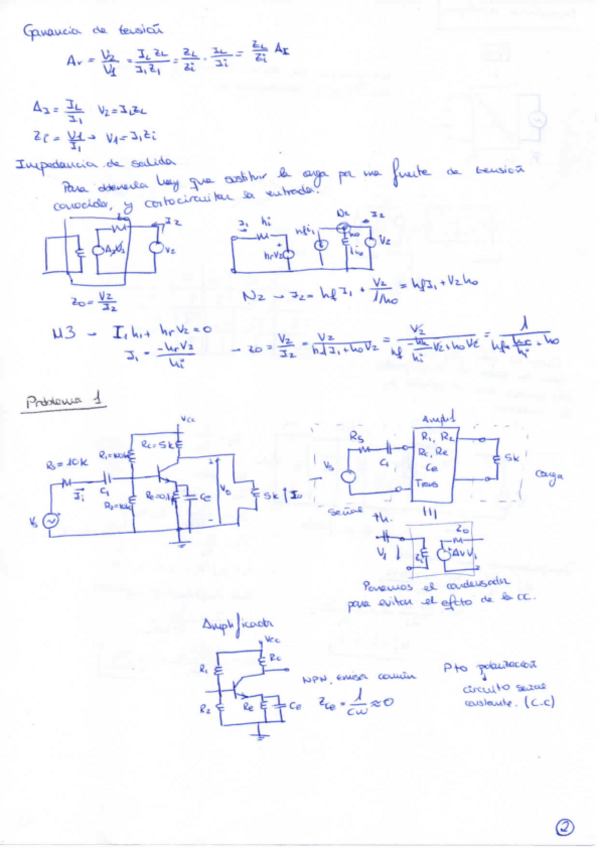 Ganancia de tensión
Av = V2/V1 = IL ZL/I1 Z1 = ZL/Zi · IL/Ii = ZL/Zi AI
AI = IL/I1 V2 = I1 ZL
Zi = V1/I1 → V1 = I1 Zi
Impedancia de salida
Para obtenerla hay que sustituir la carga por una fuente de tensión
conocida, y cortocircuitar la entrada.
I2
AvV1
V2
I1 hi
hrV2
hfi1
N2
I2
V2
Zo = V2/I2
N2 - I2 = hf I1 + V2/1/ho = hf I1 + V2 ho
M3 - I1 hi + hr V2 = 0
I1 = -hr V2/hi
- Zo = V2/I2 = V2/hf I1 + ho V2
Problema 1
Vcc
Rc = 5k
Rs = 10k
Ii
C1
Vs
Ce
Vo
5k
Io
Ampl
Rs
C1
Vs
R1, R2
Rc, Re
Ce
Trans
5k
carga
señal
th.
V1
Zi
Zo
AvV1
Ponemos el condensador
para evitar el efecto de la cc.
Amplificador
Vcc
R1
Rc
R2
Re
Ce
NPN, emisor común
Zce = 1/Cω ≈ 0
Pto polarización
circuito señal
constante. (C.C)
2